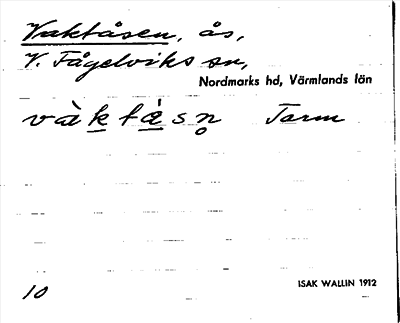 Vaktåsen, ås,
V. Fågelviks sn,
Nordmarks hd, Värmlands län
vàktåsn Tarm
ISAK WALLIN 1912
10